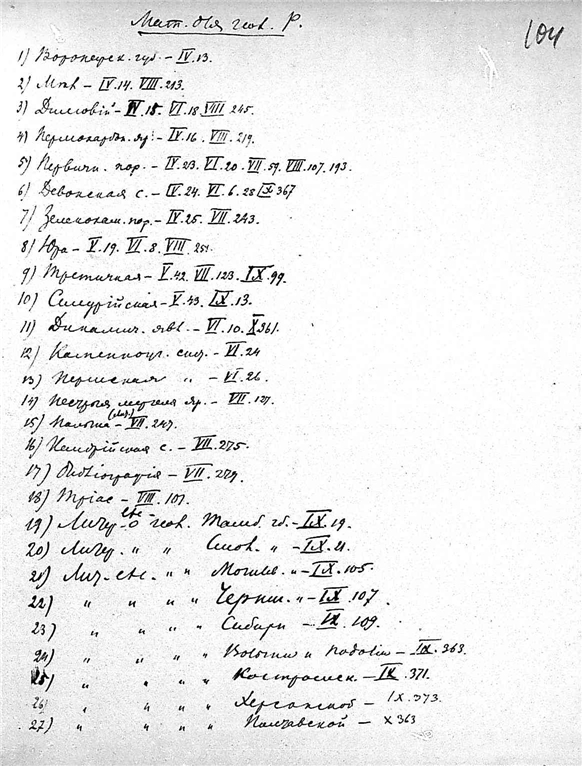 Мат. для геол. Р.
104
1) Воронежск. губ. – IV.13.
2) Мѣлъ – IV.14. VIII.213.
3) – IV.15. VI.18. VIII 245.
4) Пермокарбон. яр. – IV.16. VIII.219.
5) Первичн. пор. – IV.23. VI.20. VII.59. VIII.107.193.
6) Девонская с. – IV.24. VI.6.28 367
7) Зеленокам. пор. – IV.25. VII.243.
8) Юра – V.19. VI.8. VIII.
9) Третичная – V.42. VII.123. IX.99.
10) Силурійская – V.43. IX.13.
11) Динамич. явл. – VI.10. X 361.
12) Каменноуг. сист. – VI.24
13) Пермская " – VI.26.
14) яр. – VII.
15) – VII.247.
16) Кембрійская с. – VII.275.
17) Библіографія – VII.279.
18) Тріас – VIII.107.
19) Литер. о геол. Тамб. гб. – IX.19.
20) Литер. " " Смол. " – IX.21.
21) " " Могилев. " – IX.105.
22) " " " Черниг. " – IX.107.
23) " " " " Сибири – IX.109.
24) " " " " Волыни и Подоліи – IX.363.
25) " " " Костромск. – IX.371.
26) " " " Херсонской – IX.373.
27) " " " Полтавской – X 363